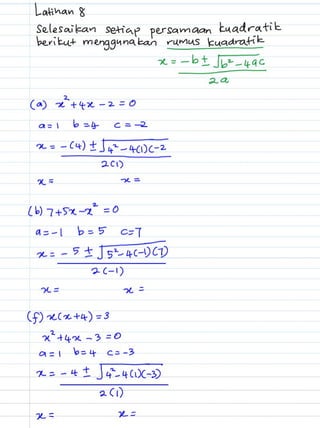 Latihan 8
Selesaikan setiap persamaan kuadratik
berikut menggunakan rumus kuadratik
x = -b ± √b² - 4ac
2a
(a) x² + 4x - 2 = 0
a = 1 b = 4 c = -2
x = -(4) ± √4² - 4(1)(-2
2(1)
x = x =
(b) 7 + 5x - x² = 0
a = -1 b = 5 c = 7
x = -5 ± √5² - 4(-1)(7)
2(-1)
x = x =
(f) x(x+4) = 3
x² + 4x - 3 = 0
a = 1 b = 4 c = -3
x = -4 ± √4² - 4(1)(-3)
2(1)
x = x =